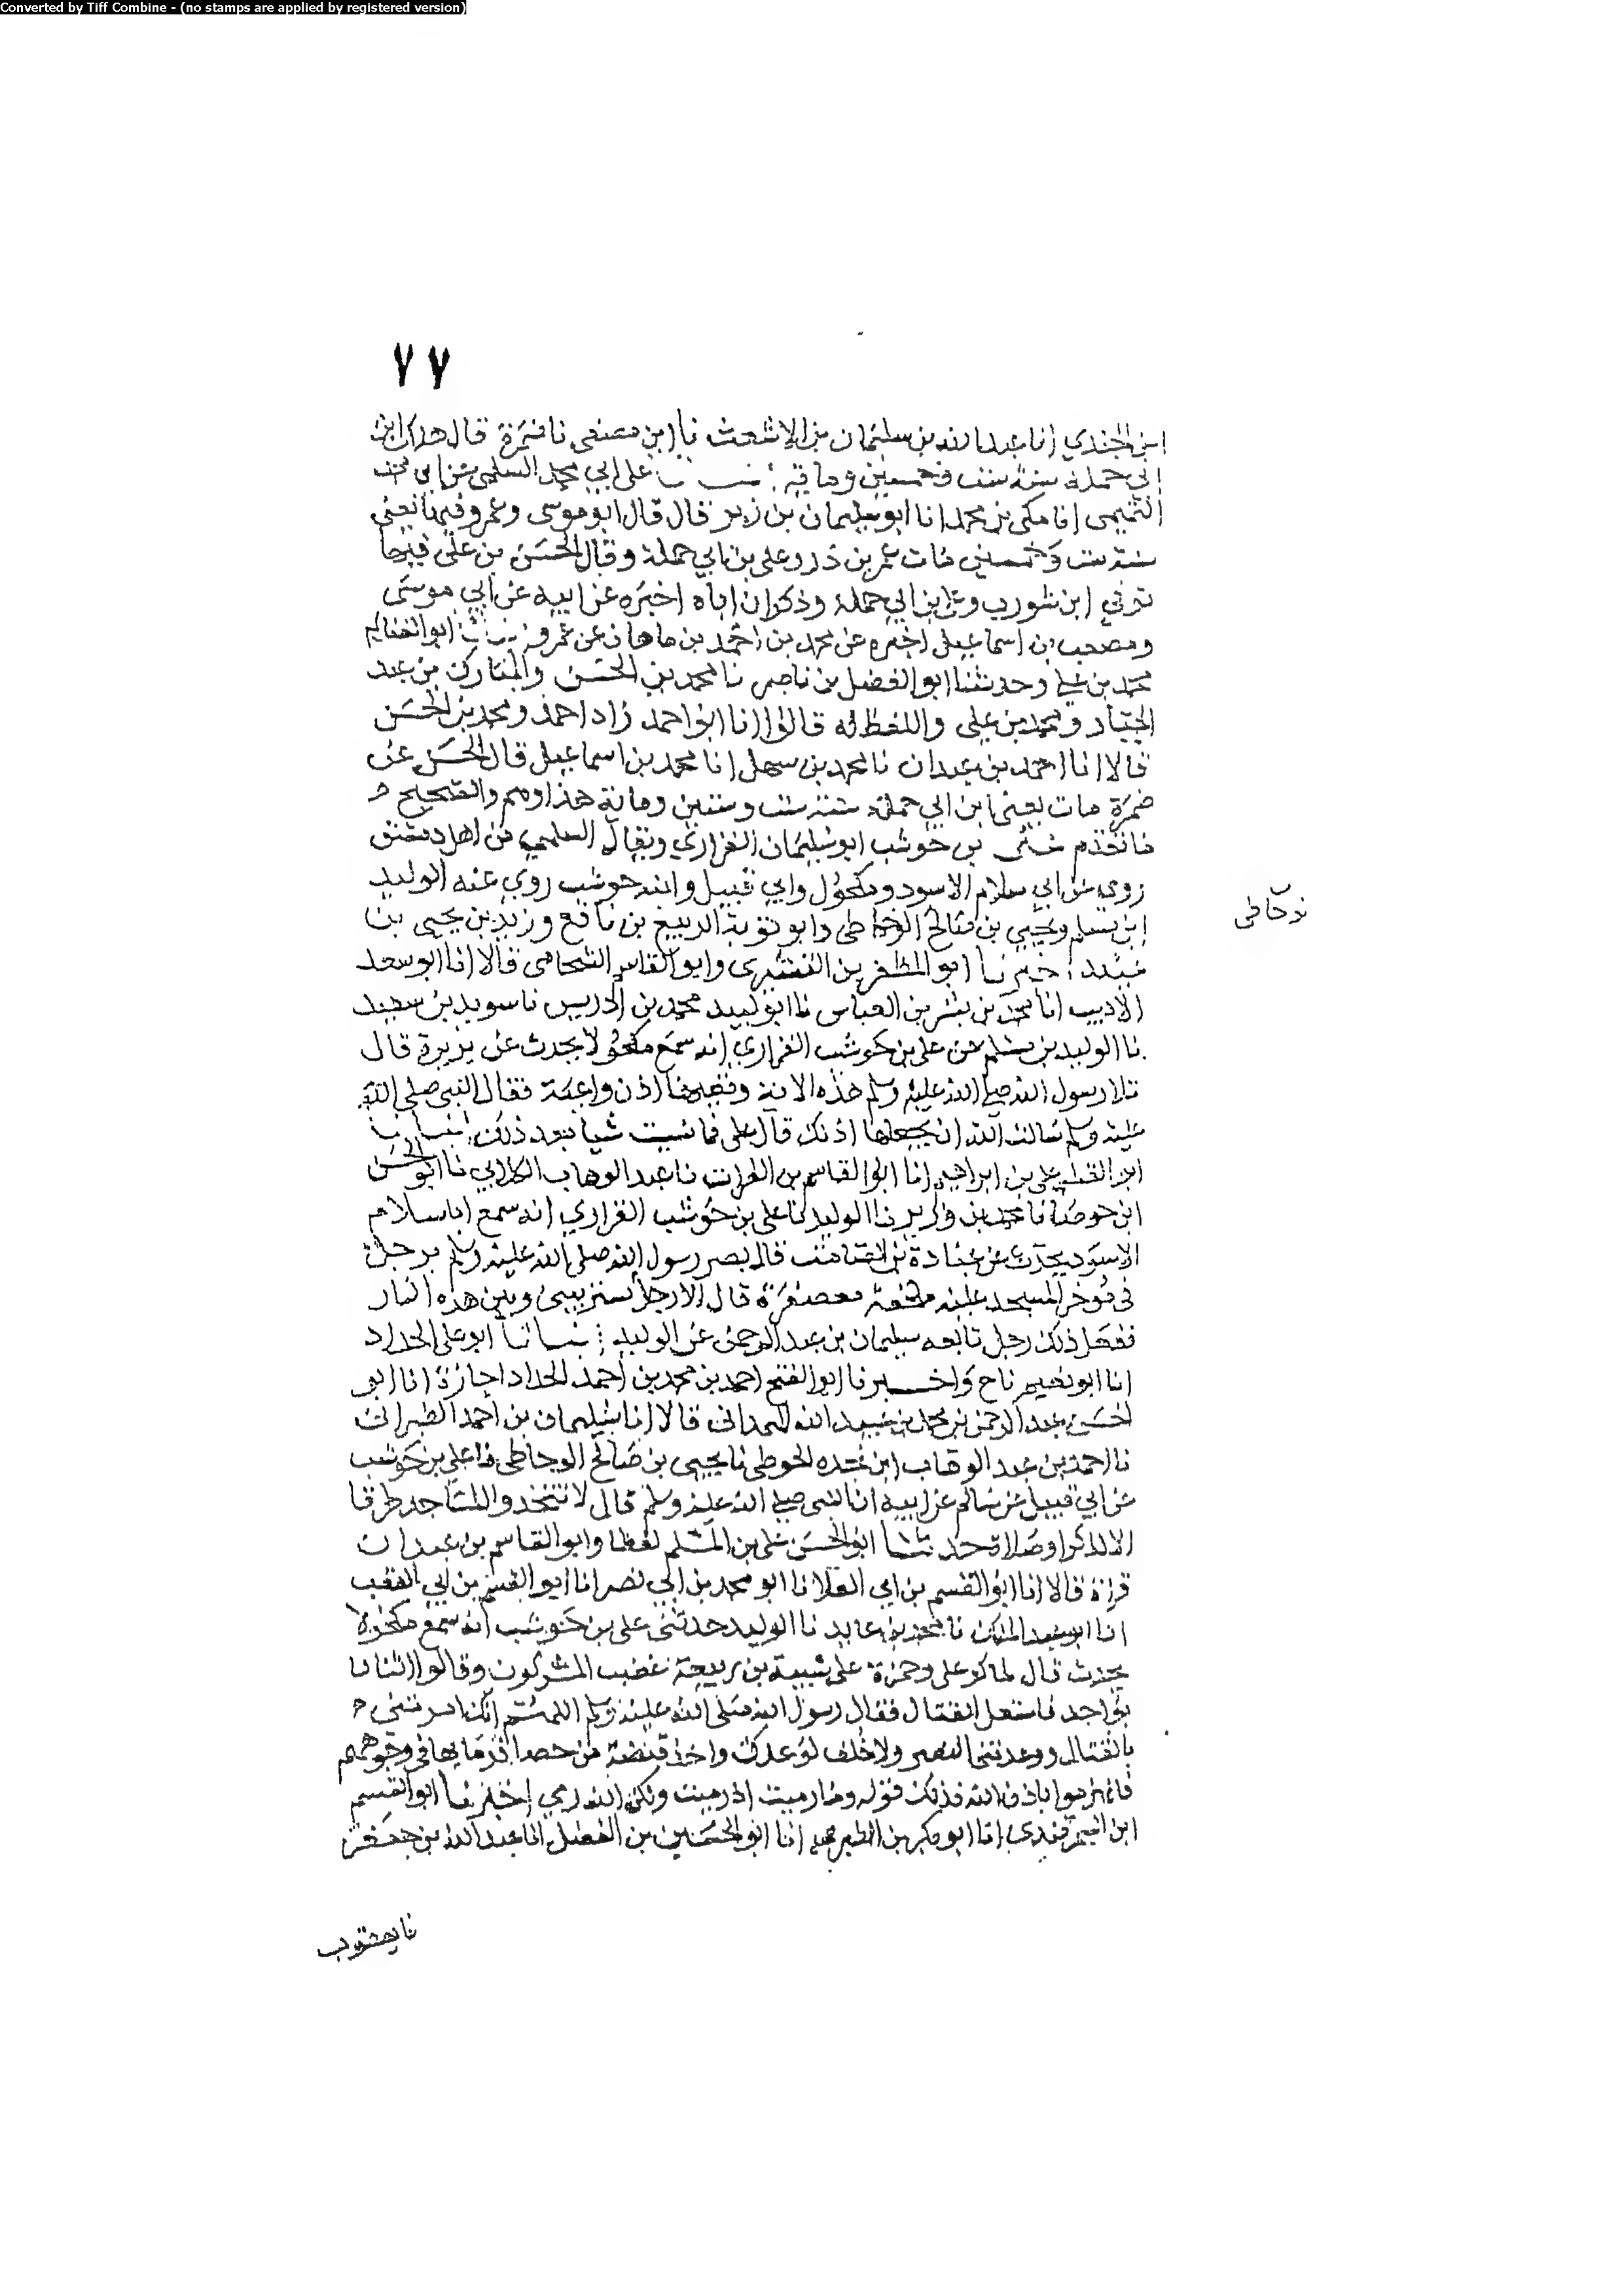 Converted by Tiff Combine - (no stamps are applied by registered version)
٧٧
ابن الجندي انا عبد الله بن سليمان بن الاشعث نا ابن مصفى نا ضمرة قال هلك ابن
ابي حملة سنة ست وخمسين وماية على ابي محمد السلمي عن ابي محمد
التميمي انا مكي بن محمد انا ابو سليمان بن زبر قال قال ابو موسى وعمرو فيها يعني
سنة ست وخمسين مات عمر بن ذر وعلي بن ابي حملة وقال الحسن بن علي فيها
توفي ابن شوذب وعلي بن ابي حملة وذكر ان اباه اخبره عن ابيه عن ابي موسى
ومصعب بن اسماعيل اخبره عن محمد بن احمد بن ماهان عن عمرو ابو الغنايم
محمد بن علي وحدثنا ابو الفضل بن ناصر نا محمد بن الحسن والمبارك بن عبد
الجبار ومحمد بن علي واللفظ له قالوا انا ابو احمد زاد احمد ومحمد بن الحسن
قالا انا احمد بن عبدان نا محمد بن سهل انا محمد بن اسماعيل قال الحسن عن
ضمرة مات يعني ابن ابي حملة سنة ست وستين وماية هذا وهم والصحيح
ما تقدم علي بن حوشب ابو سليمان الفزاري ويقال السلمي من اهل دمشق
روى عن ابي سلام الاسود ومكحول وابي قبيل وابيه حوشب روى عنه الوليد
ابن مسلم ويحيى بن صالح الوحاظي وابو توبة الربيع بن نافع وزيد بن يحيى بن
عبيد اخبرنا ابو المظفر بن القشيري وابو القاسم الشحامي قالا انا ابو سعد
الاديب انا محمد بن بشر بن العباس نا ابو لبيد محمد بن ادريس نا سويد بن سعيد
نا الوليد بن مسلم عن علي بن حوشب الفزاري انه سمع مكحولا يحدث عن بريرة قال
تلا رسول الله صلى الله عليه وسلم هذه الاية وتعيها اذن واعية فقال النبي صلى الله
عليه وسلم سالت الله ان يجعلها اذنك قال علي فما نسيت شيا بعد ذلك انبانا
ابو القسم علي بن ابراهيم انا ابو القاسم بن الفرات نا عبد الوهاب الكلابي نا ابو الحسن
ابن جوصا نا محمد بن وزير نا الوليد نا علي بن حوشب الفزاري انه سمع ابا سلام
الاسود يحدث عن عبادة بن الصامت قال بصر رسول الله صلى الله عليه وسلم برجل
في مؤخر المسجد عليه ملحفة معصفرة قال الا رجل يستر بيني وبين هذه النار
ففعل ذلك رجل تابعه سليمان بن عبد الرحمن عن الوليد انبانا ابو علي الحداد
انا ابو نعيم ناح واخبرنا ابو الفتح احمد بن محمد بن احمد الحداد اجازة انا ابو
الحسن عبد الرحمن بن محمد بن عبيد الله الهمداني قالا انا سليمان بن احمد الطبراني
نا احمد بن عبد الوهاب ابن نجده الحوطي نا يحيى بن صالح الوحاظي نا علي بن حوشب
عن ابي قبيل عن سالم عن ابيه ان النبي صلى الله عليه وسلم قال لا تتخذوا المساجد طرقا
الا لذكر او صلاة حدثنا ابو الحسن علي بن المسلم لفظا وابو القاسم بن عبدان
قراة قالا انا ابو القسم بن ابي العلا نا ابو محمد بن ابي نصر انا ابو القسم بن ابي العقب
انا ابو عبد الملك نا محمد بن عايد نا الوليد حدثني علي بن حوشب انه سمع مكحولا
يحدث قال لما كر علي وحمزة على شيبة بن ربيعة غضب المشركون وقالوا اثنان
بواحد فاشتعل القتال فقال رسول الله صلى الله عليه وسلم اللهم انك امرتني
بالقتال ووعدتني النصر ولا خلف لوعدك واخذ قبضة من حصا فرمى بها في وجوههم
فانهزموا باذن الله فذلك قوله وما رميت اذ رميت ولكن الله رمى اخبرنا ابو القسم
ابن السمرقندي انا ابو بكر بن الطبري انا ابو الحسين بن الفضل انا عبد الله بن جعفر
نا يعقوب